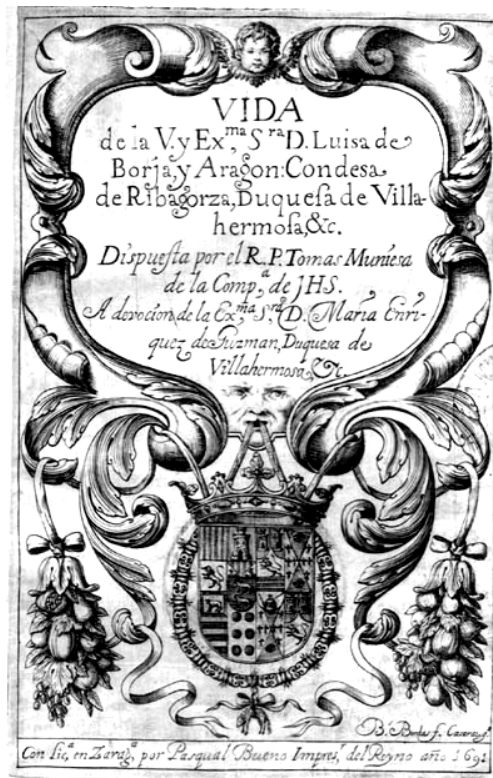 VIDA
de la V. y Ex.ma S.ra D. Luisa de
Borja, y Aragon: Condesa
de Ribagorza, Duquesa de Villa-
hermosa, &c.
Dispuesta por el R. P. Tomas Muniesa
de la Comp.a de JHS.
A devocion de la Ex.ma S.ra D. Maria Enri-
quez de Guzman, Duquesa de
Villahermosa, &c.
Con lic.a en Zarag.a por Pasqual Bueno Impres.r del Reyno año 1691